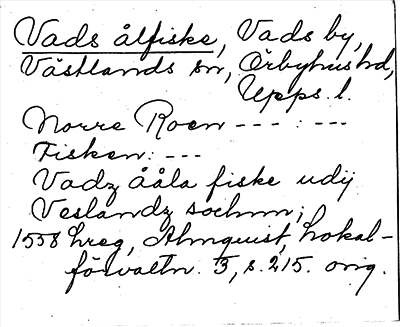 Vads ålfiske, Vads by,
Västlands sn, Örbyhus hd,
Upps. l.
Norre Roen --- : ---
Fisken: ---
Vadz ååla fiske udij
Veslandz sochnn;
1558 hreg, Almquist, Lokal-
förvaltn. 3, s. 215. orig.